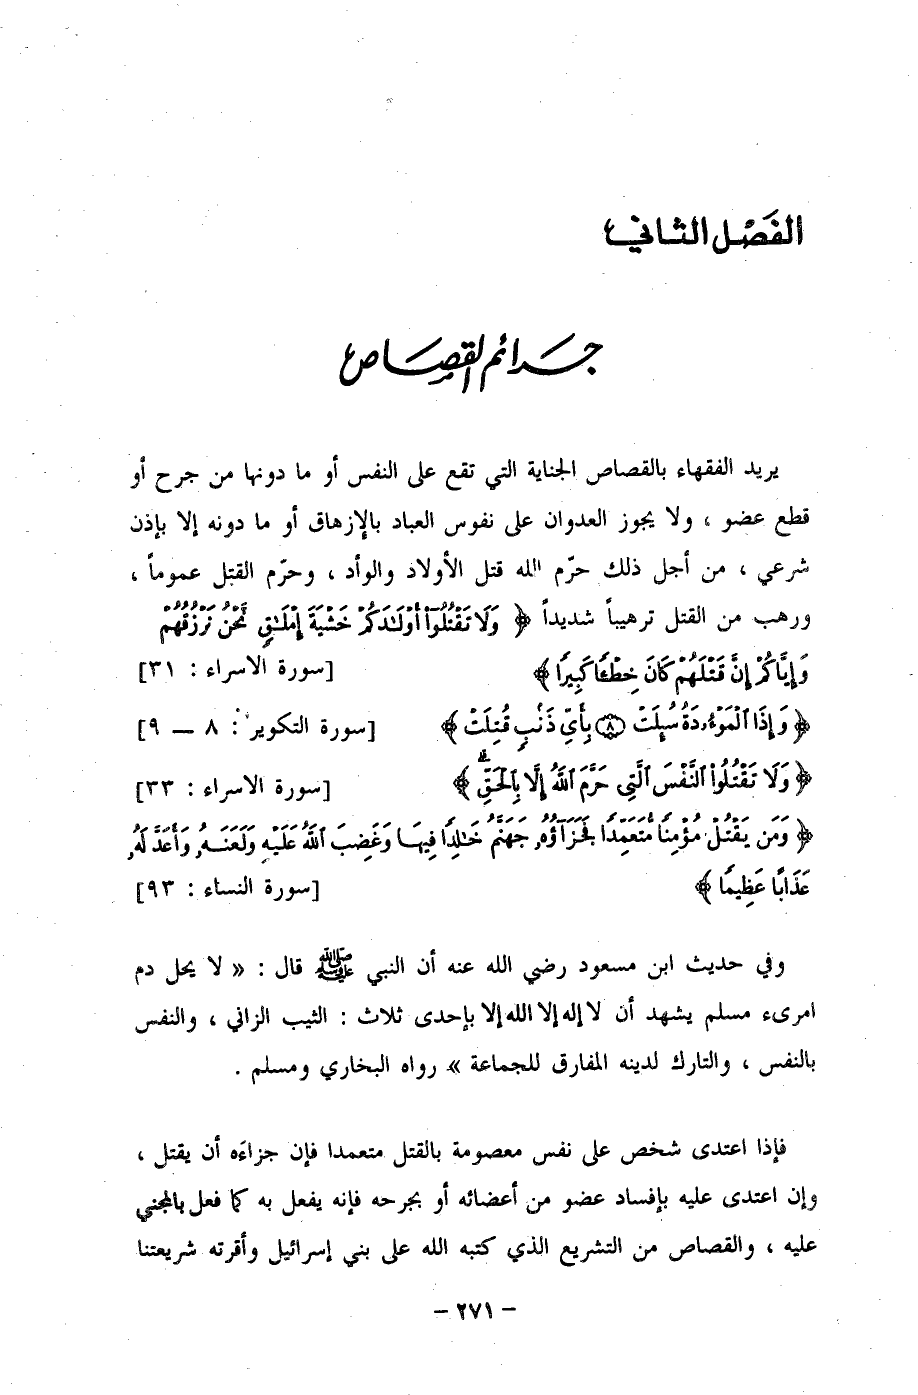 الفَصْل الثاني
جرائم القصاص
يريد الفقهاء بالقصاص الجناية التي تقع على النفس أو ما دونها من جرح أو
قطع عضو ، ولا يجوز العدوان على نفوس العباد بالإزهاق أو ما دونه إلا بإذن
شرعي ، من أجل ذلك حرّم الله قتل الأولاد والوأد ، وحرّم القتل عموماً ،
ورهب من القتل ترهيباً شديداً ﴿ وَلَا تَقْتُلُوٓا۟ أَوْلَٰدَكُمْ خَشْيَةَ إِمْلَٰقٍ نَّحْنُ نَرْزُقُهُمْ
وَإِيَّاكُمْ إِنَّ قَتْلَهُمْ كَانَ خِطْـًٔا كَبِيرًا ﴾ [سورة الاسراء : ٣١]
﴿ وَإِذَا ٱلْمَوْءُۥدَةُ سُئِلَتْ ٨ بِأَيِّ ذَنۢبٍ قُتِلَتْ ﴾ [سورة التكوير : ٨ – ٩]
﴿ وَلَا تَقْتُلُوا۟ ٱلنَّفْسَ ٱلَّتِي حَرَّمَ ٱللَّهُ إِلَّا بِٱلْحَقِّ ۗ ﴾ [سورة الاسراء : ٣٣]
﴿ وَمَن يَقْتُلْ مُؤْمِنًا مُّتَعَمِّدًا فَجَزَآؤُهُۥ جَهَنَّمُ خَٰلِدًا فِيهَا وَغَضِبَ ٱللَّهُ عَلَيْهِ وَلَعَنَهُۥ وَأَعَدَّ لَهُۥ
عَذَابًا عَظِيمًا ﴾ [سورة النساء : ٩٣]
وفي حديث ابن مسعود رضي الله عنه أن النبي ﷺ قال : « لا يحل دم
امرىء مسلم يشهد أن لا إله إلا الله إلا بإحدى ثلاث : الثيب الزاني ، والنفس
بالنفس ، والتارك لدينه المفارق للجماعة » رواه البخاري ومسلم .
فإذا اعتدى شخص على نفس معصومة بالقتل متعمدا فإن جزاءه أن يقتل ،
وإن اعتدى عليه بإفساد عضو من أعضائه أو بجرحه فإنه يفعل به كما فعل بالمجني
عليه ، والقصاص من التشريع الذي كتبه الله على بني إسرائيل وأقرته شريعتنا
– ٢٧١ –